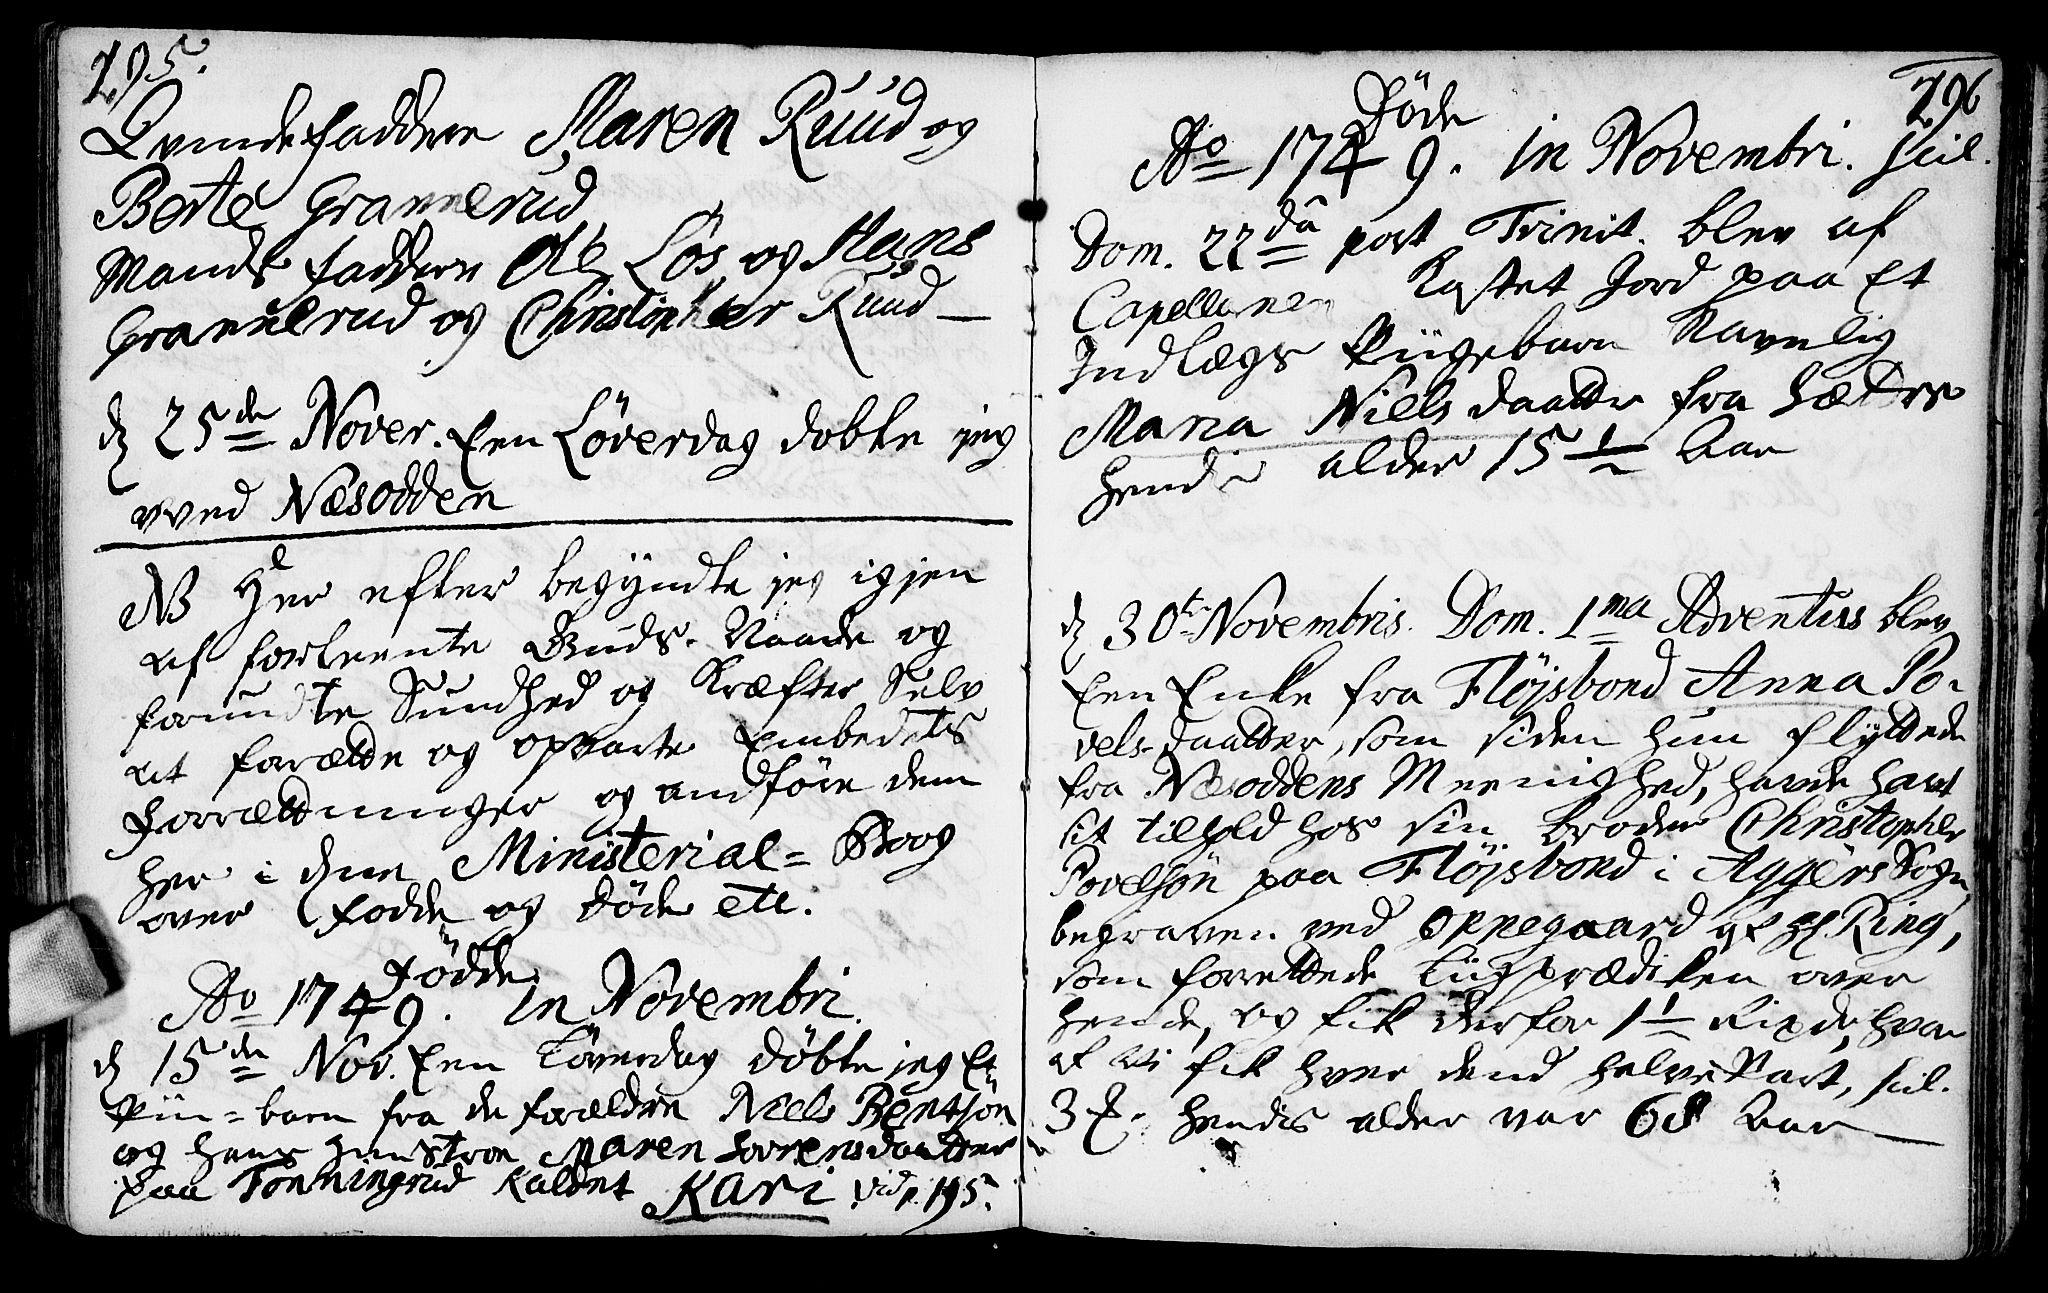 295.
Qvindefaddere Maren Ruud og
Berte Gravelrud
Mands faddere Ole Løs og Hans
Gravelrud og Christopher Ruud —
d 25de Nover. Een Løverdag dobte jeg
ved Næsodden
NB Her efter begyndte jeg igjen
af forleente Guds Naade og
forundte Sundhed og Kræfter Selv
at forætte og opvarte Embedets
Forrættninger og andføre dem
her i denne Ministerial= Boog
over Fødde og Døde etc.
Fødde
Ao 1749. in Novembri.
d 15de Nov. Een Løverdag døbte jeg Et
Piin=barn fra de forældre Niels Bentsøn
og hans Hunstroe Maren Lorrensdaatter
paa Tonningrud kaldet Kari vid. p. 195.
296
Døde
Ao 1749. in Novembri. scil.
Dom. 22da post Trinit. blev af
Capellanen Kastet Jord paa Et
Indlægs Piigebarn Navnlig
Maria Niels daatter fra
hendis alder 15 1/2 Aar
d 30te Novembris. Dom. 1ma Adventus blev
Een Enke fra Fløjsbond Anna Po-
vels-daatter, som siden hun flyttede
fra Næsoddens Meenighed, havde havt
sit tilhold hos sin broder Christopher
Povelsøn paa Fløjsbond i Aggers Sogn,
begraven ved Oppegaard af Hr Ring,
som forrettede Liigprædiken over
hende, og fik derfor 1 1/2 Rixdr, hvor
af vi fik hver dend halve Part, scil.
3 hendis alder var 68 Aar —